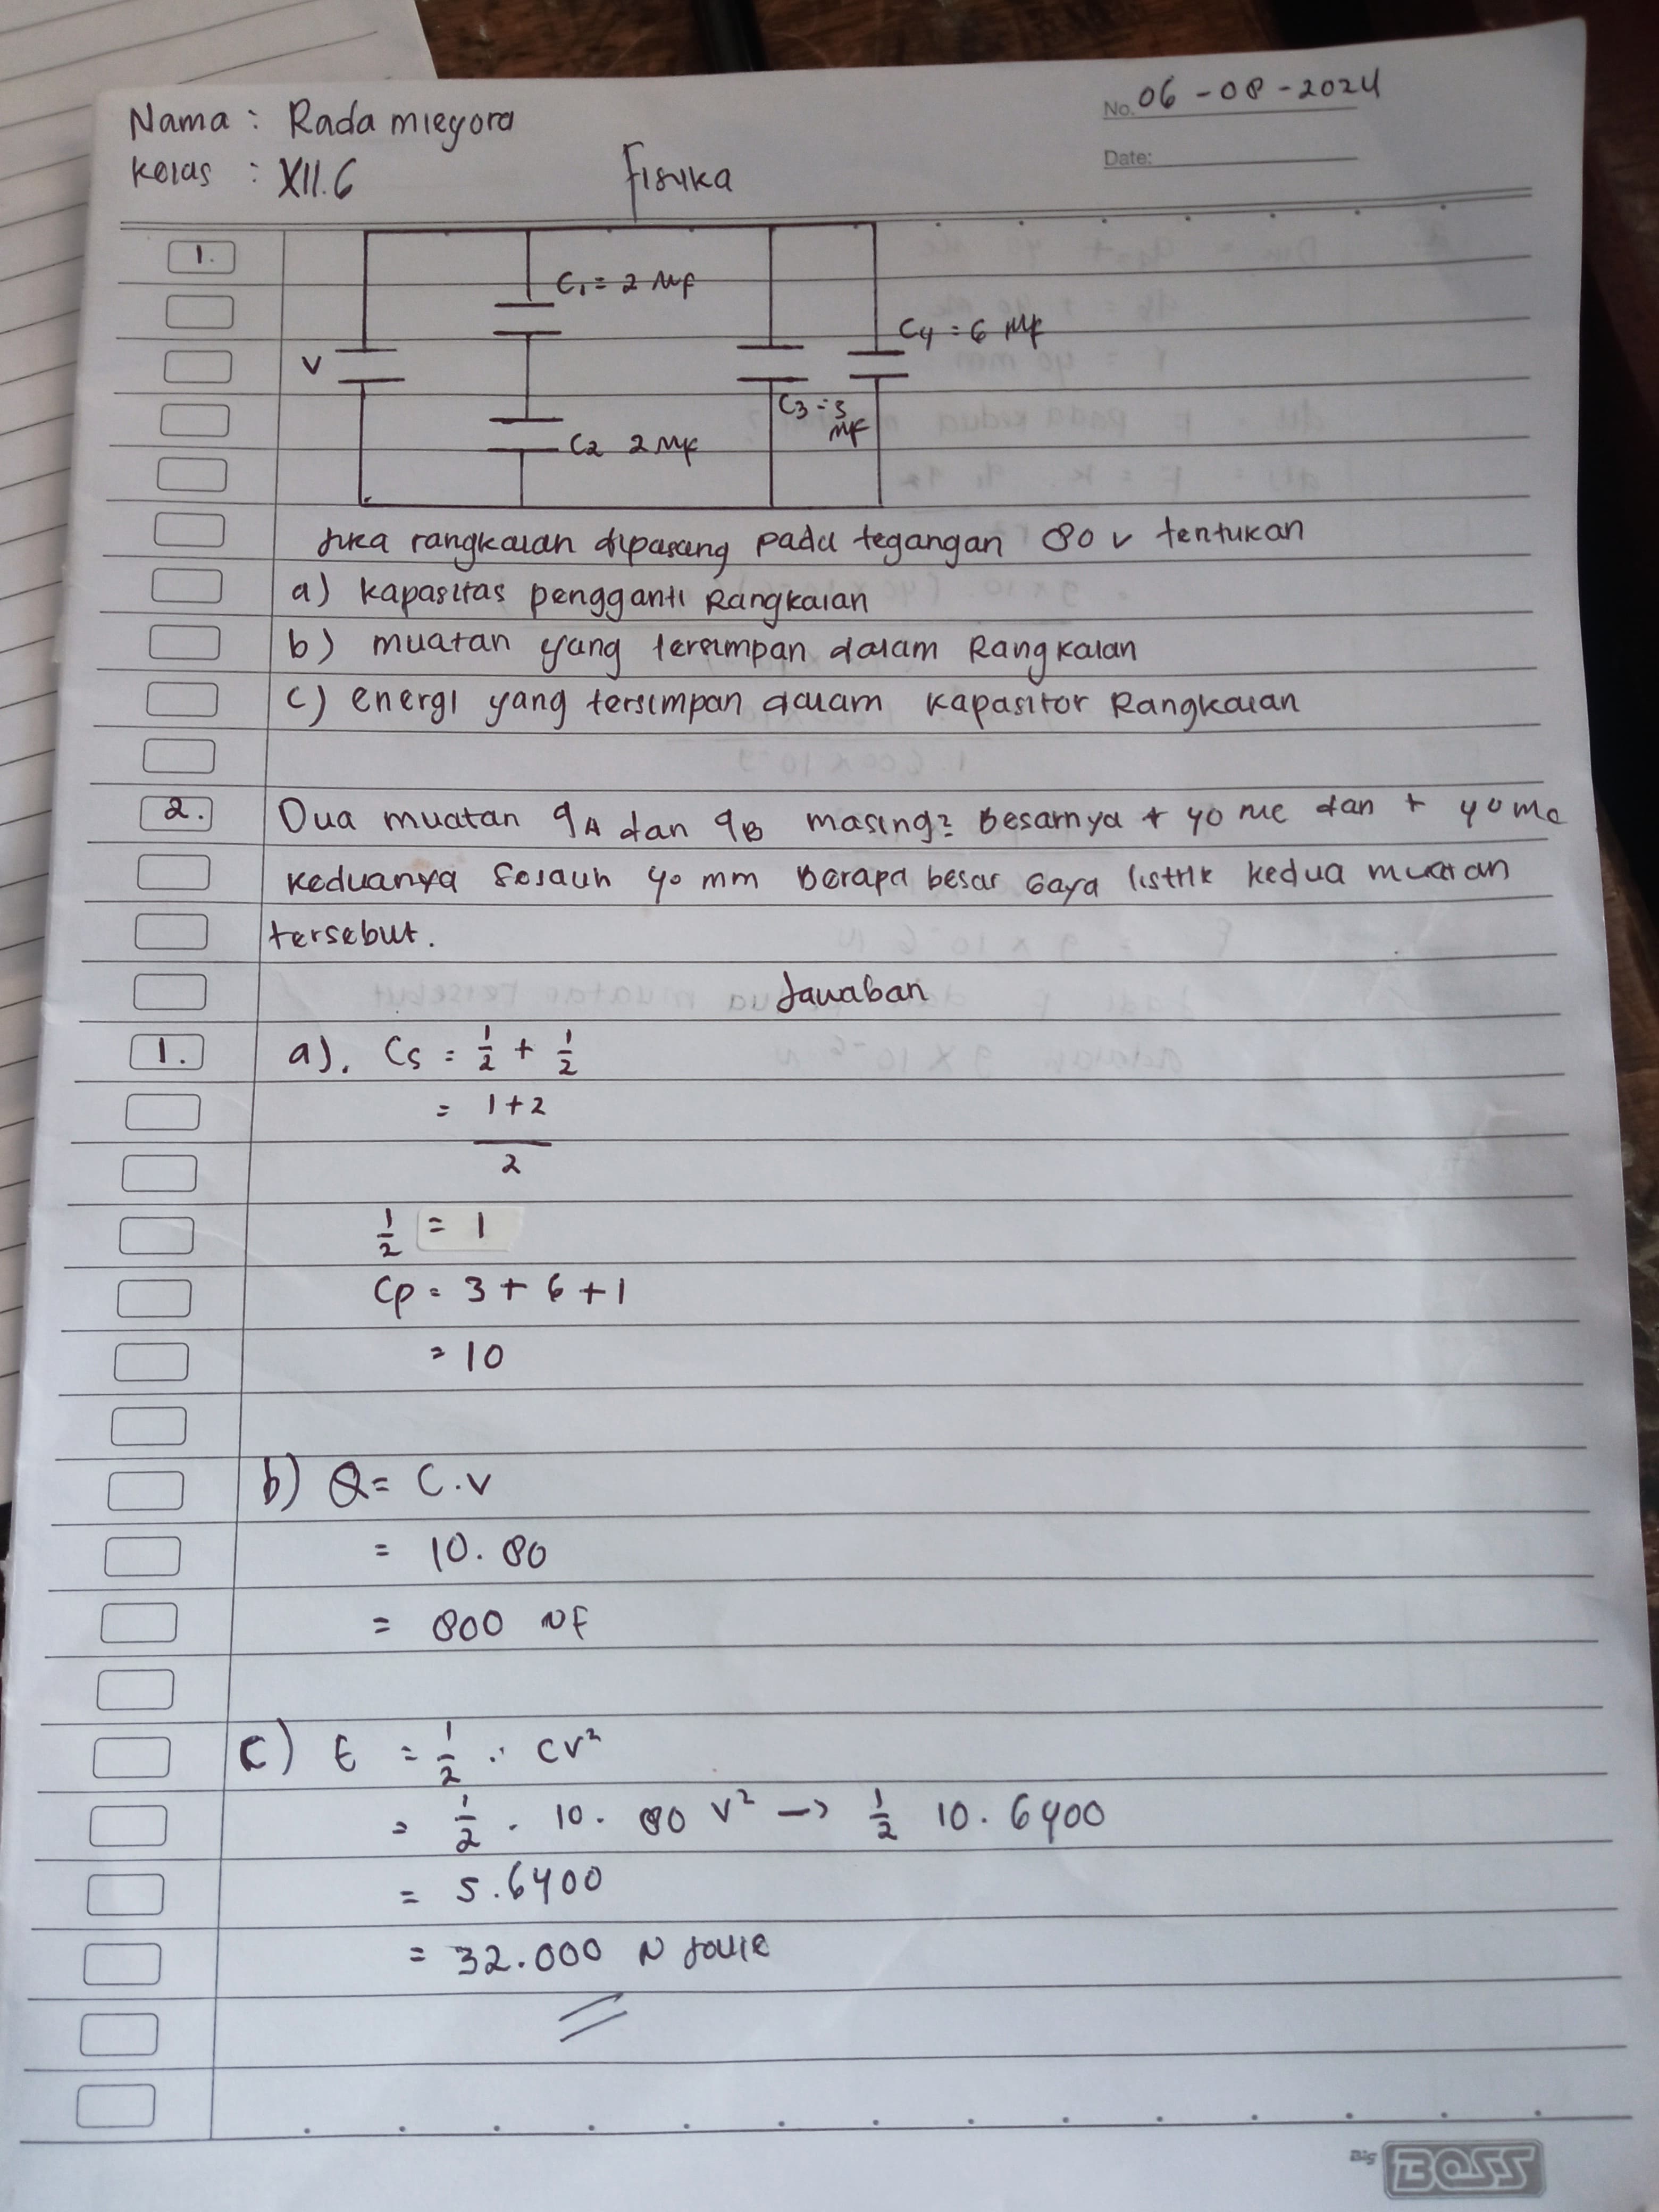 Nama : Rada miegora
No. 06 - 08 - 2024
Kelas : XII.6
Fisika
Date:
1.
C₁ = 2 Mf
V
C4 = 6 Mf
C3 = 3
Mf
C2 2 Mf
Jika rangkaian dipasang pada tegangan 80 v tentukan
a) kapasitas pengganti Rangkaian
b) muatan yang tersimpan dalam Rangkaian
c) energi yang tersimpan dalam kapasitor Rangkaian
2. Dua muatan qA dan qB masing² Besarnya + 40 Mc dan + 40 Mc
keduanya Sejauh 40 mm Berapa besar Gaya listrik kedua muatan
tersebut.
Jawaban
1. a). Cs = 1/2 + 1/2
= 1+2
2
1/2 = 1
Cp = 3 + 6 + 1
= 10
b) Q = C.V
= 10. 80
= 800 NF
c) E = 1/2 . CV²
= 1/2 . 10. 80 V² -> 1/2 10. 6400
= 5.6400
= 32.000 N Joule
Big BOSS